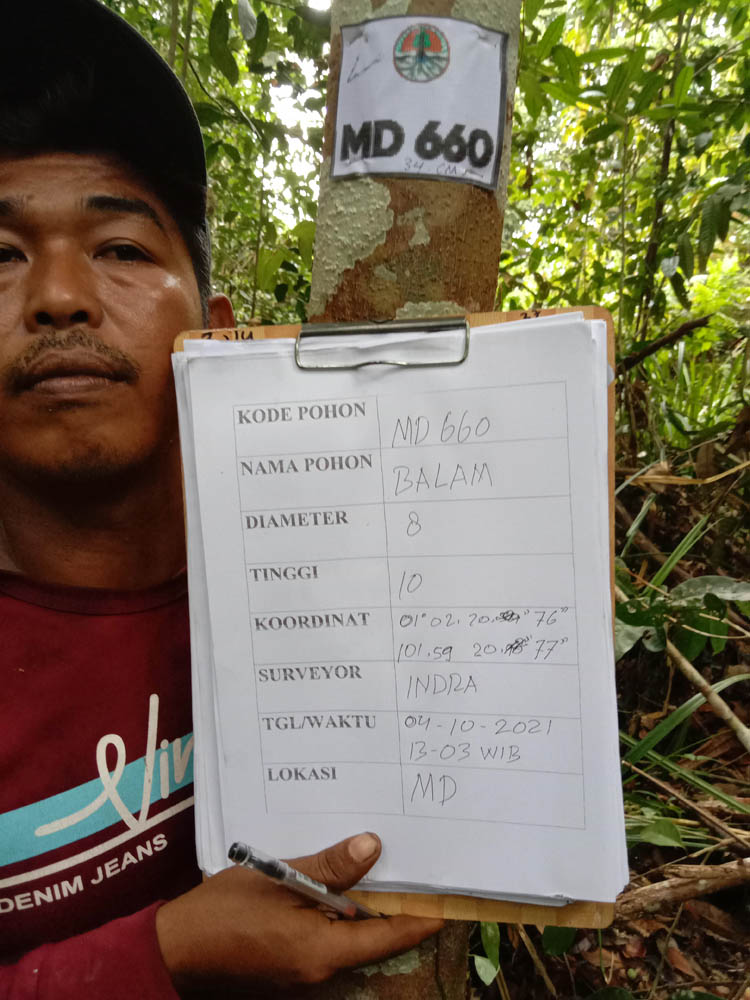 MD 660
34 CM
KODE POHON MD 660
NAMA POHON BALAM
DIAMETER 8
TINGGI 10
KOORDINAT 01° 02. 20. 76"
101. 59 20. 77"
SURVEYOR INDRA
TGL/WAKTU 04-10-2021
13-03 WIB
LOKASI MD
Vin
DENIM JEANS